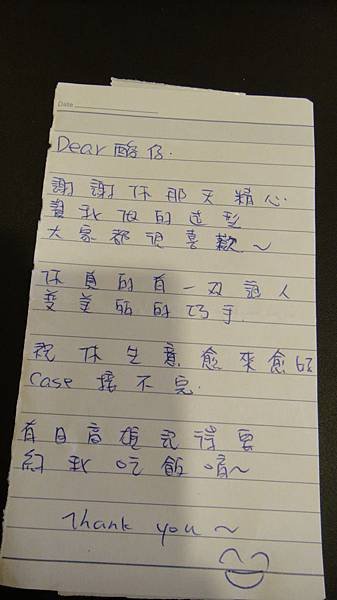 Date
Dear 酪仔.
謝謝你那天精心
幫我做的造型
大家都很喜歡~
你真的有一双讓人
變美丽的巧手.
祝你生意愈來愈好
Case 接不完.
有自高雄記得要
約我吃飯唷~
Thank you ~